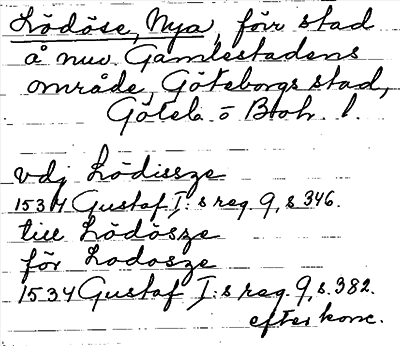 Lödöse, Nya, förr stad
å nuv. Gamlestadens
område, Göteborgs stad,
Göteb. o Boh. l.
vdj Lödissze
1534 Gustaf I:s reg. 9, s 346.
till Lödösze
för Lodosze
1534 Gustaf I:s reg. 9, s. 382.
efter konc.